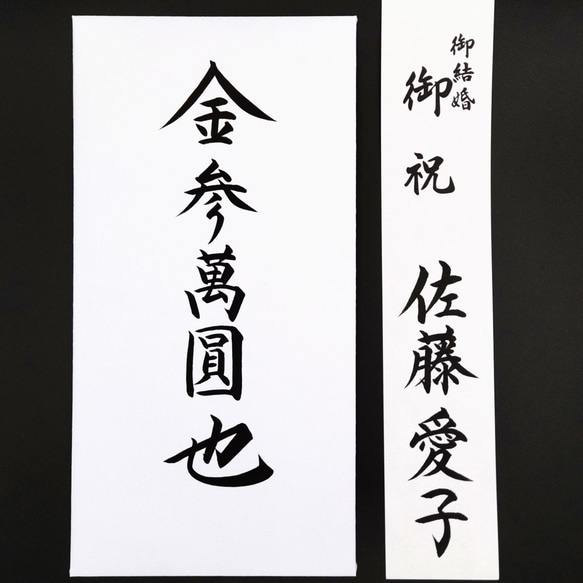 御結婚
御祝
佐藤愛子
金参萬圓也